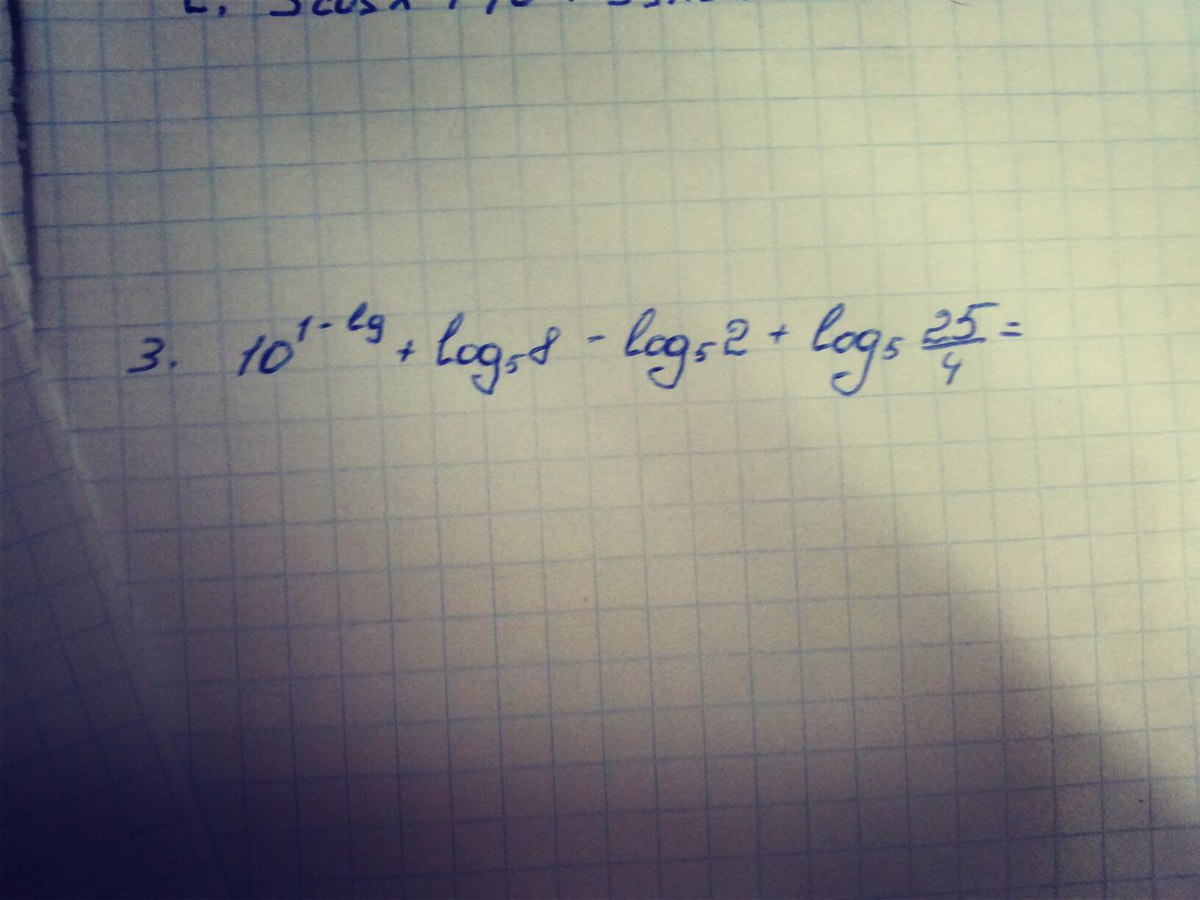 3. 10^(1-lg) + log₅8 - log₅2 + log₅ 25/4 =